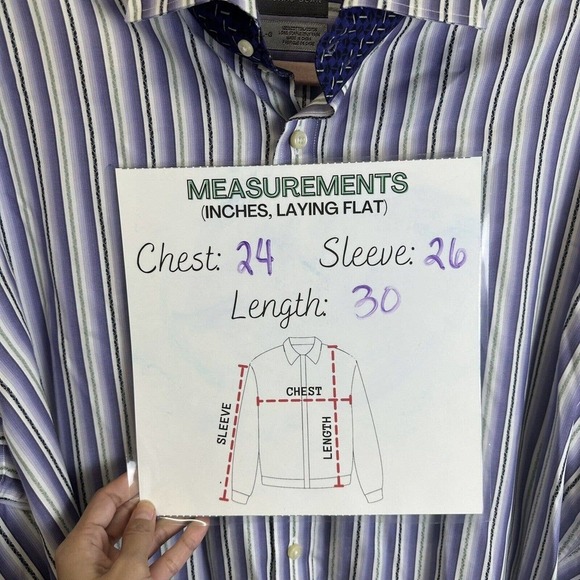 MEASUREMENTS
(INCHES, LAYING FLAT)
Chest: 24 Sleeve: 26
Length: 30
CHEST
SLEEVE
LENGTH